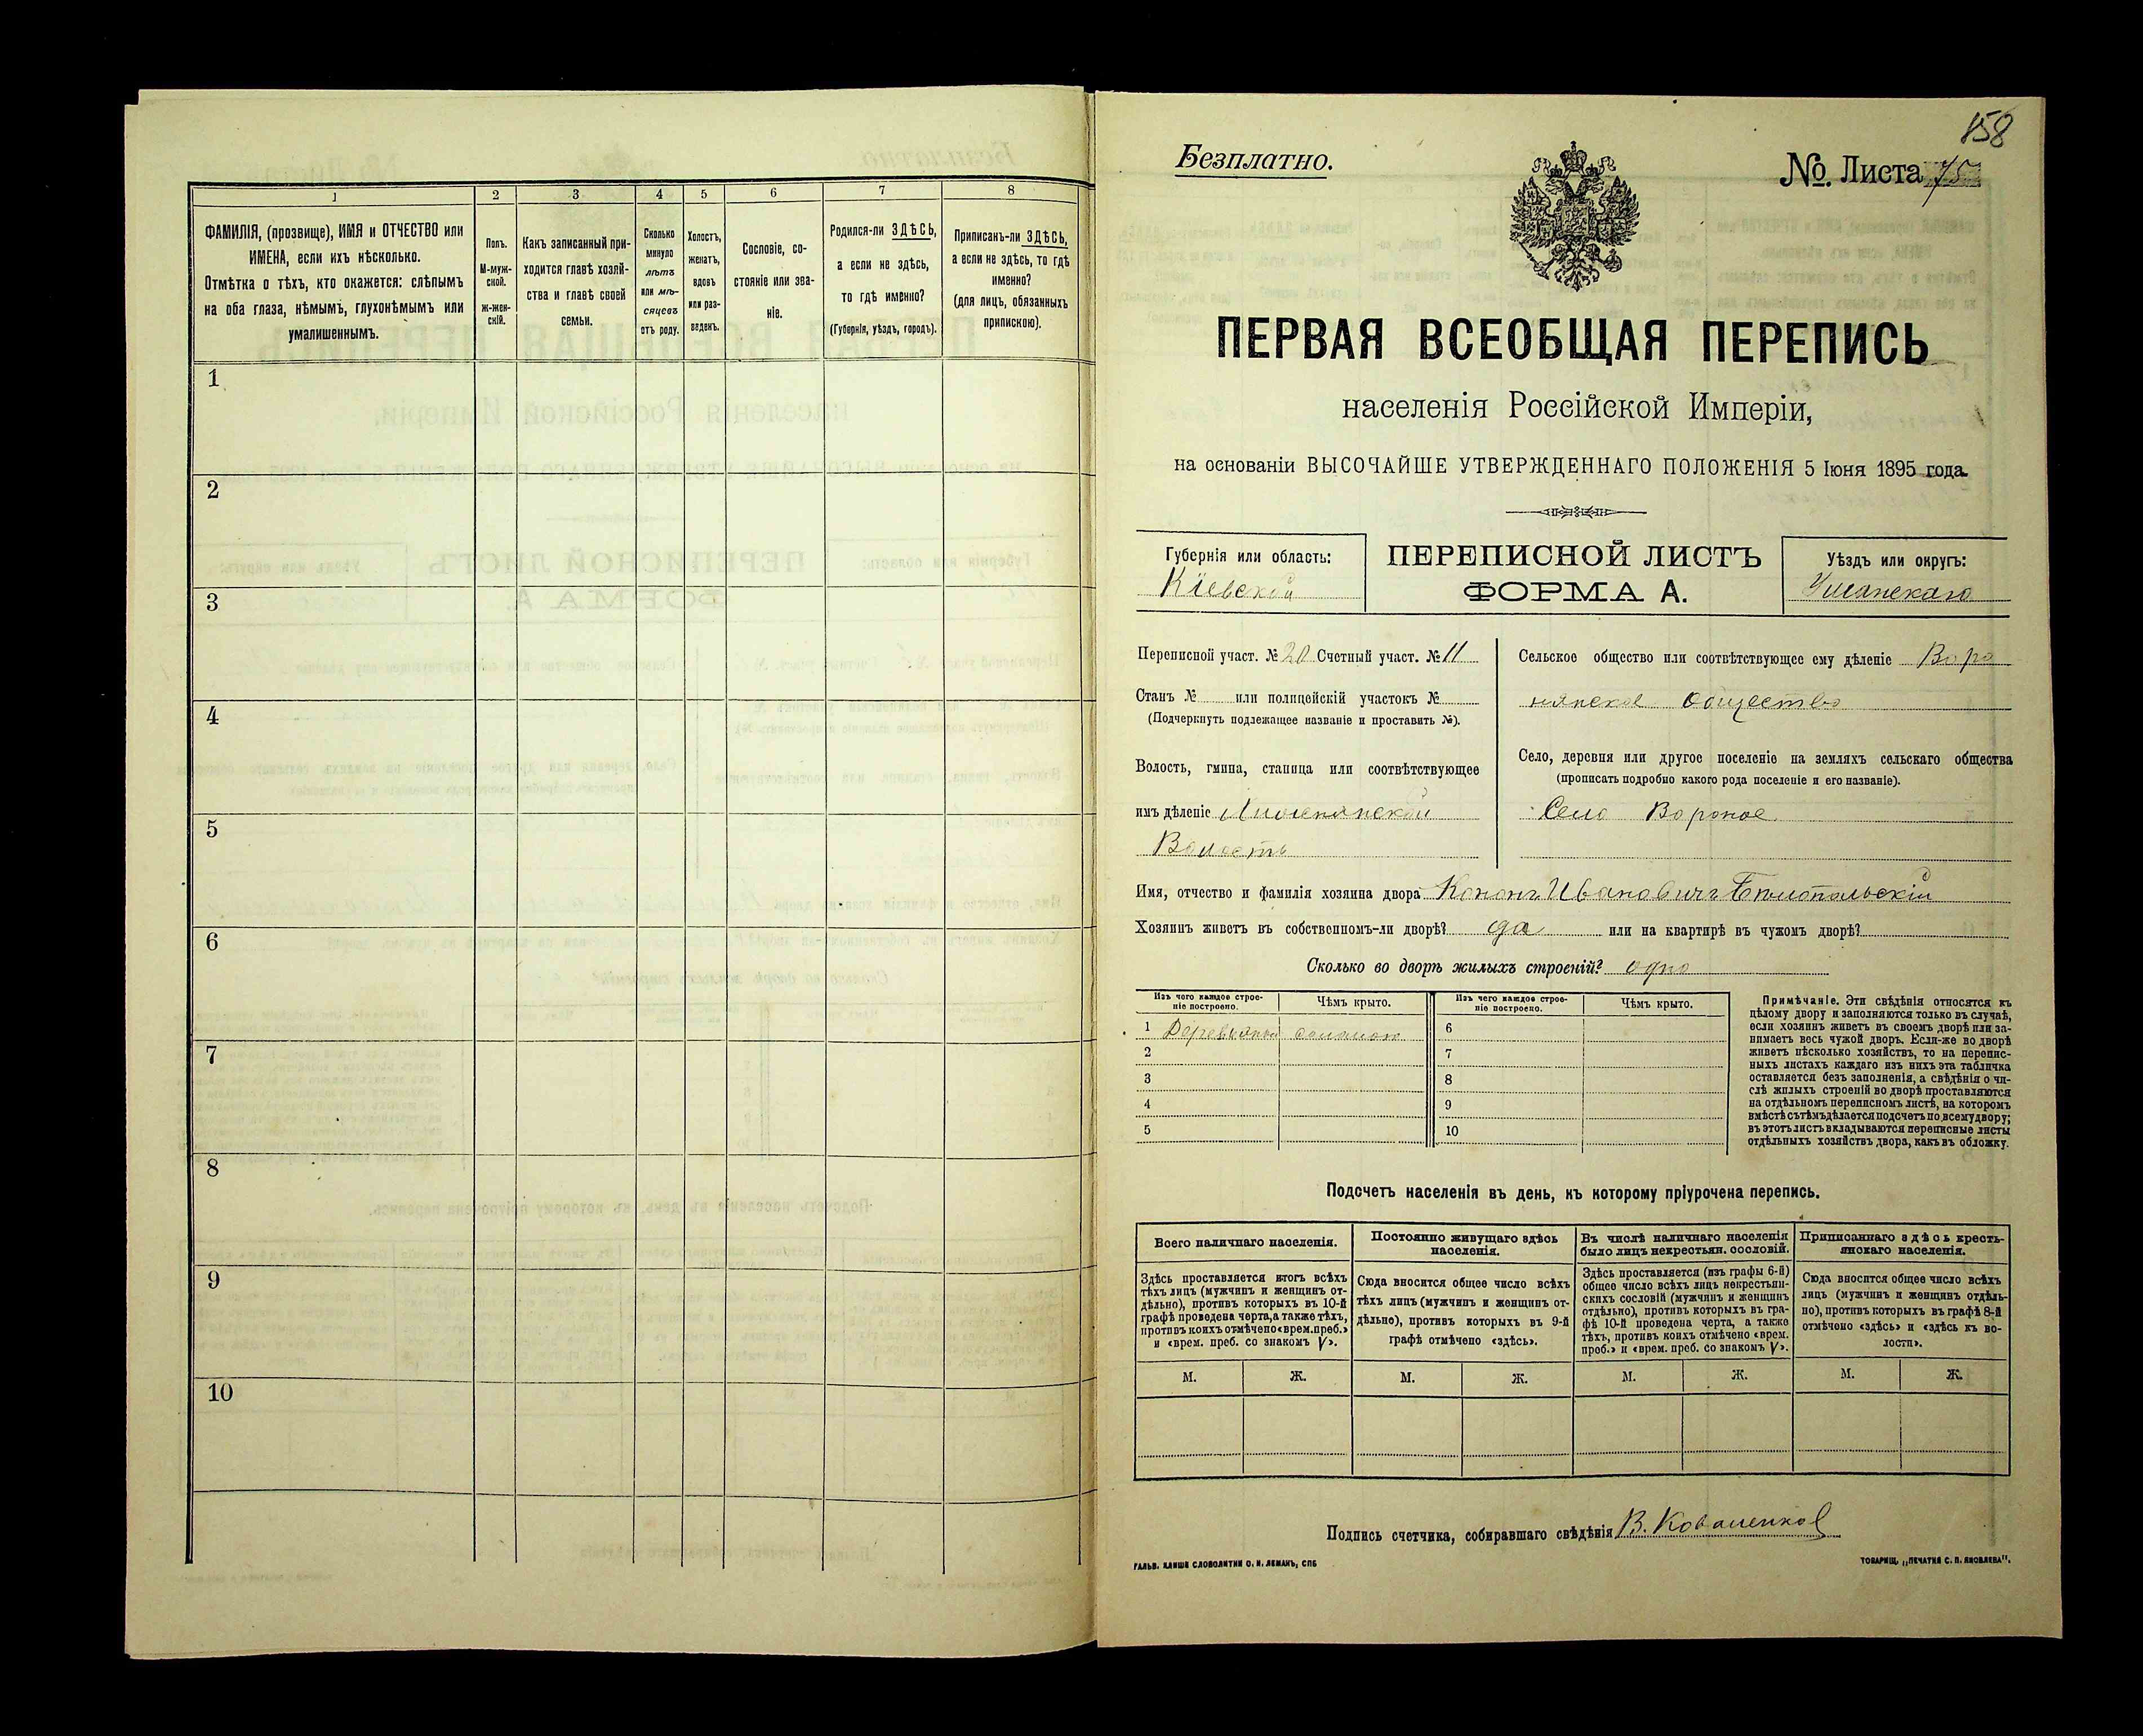 1
2
3
4
5
6
7
8
ФАМИЛІЯ, (прозвище), ИМЯ и ОТЧЕСТВО или
ИМЕНА, если ихъ нѣсколько.
Отмѣтка о тѣхъ, кто окажется: слѣпымъ
на оба глаза, нѣмымъ, глухонѣмымъ или
умалишеннымъ.
Полъ.
М-муж-
ской.
Ж-жен-
скій.
Какъ записанный при-
ходится главѣ хозяй-
ства и главѣ своей
семьи.
Сколько
минуло
лѣтъ
или мѣ-
сяцевъ
отъ роду.
Холостъ,
женатъ,
вдовъ
или раз-
веденъ.
Сословіе, со-
стояніе или зва-
ніе.
Родился-ли ЗДѢСЬ,
а если не здѣсь,
то гдѣ именно?
(Губернія, уѣздъ, городъ).
Приписанъ-ли ЗДѢСЬ,
а если не здѣсь, то гдѣ
именно?
(для лицъ, обязанныхъ
припискою).
1
2
3
4
5
6
7
8
9
10
158
Безплатно.
№. Листа 75
ПЕРВАЯ ВСЕОБЩАЯ ПЕРЕПИСЬ
населенія Россійской Имперіи,
на основаніи ВЫСОЧАЙШЕ УТВЕРЖДЕННАГО ПОЛОЖЕНІЯ 5 Іюня 1895 года.
Губернія или область:
Кіевской
ПЕРЕПИСНОЙ ЛИСТЪ
ФОРМА А.
Уѣздъ или округъ:
Уманскаго
Переписной участ. № 20 Счетный участ. № 11
Станъ № или полицейскій участокъ №
(Подчеркнуть подлежащее названіе и проставить №).
Волость, гмина, станица или соотвѣтствующее
имъ дѣленіе
Волость
Сельское общество или соотвѣтствующее ему дѣленіе Воро
нянское общество
Село, деревня или другое поселеніе на земляхъ сельскаго общества
(прописать подробно какого рода поселеніе и его названіе).
Село Вороное
Имя, отчество и фамилія хозяина двора Кононъ Ивановичъ Бѣлопольскій
Хозяинъ живетъ въ собственномъ-ли дворѣ? да или на квартирѣ въ чужомъ дворѣ?
Сколько во дворѣ жилыхъ строеній? одно
Изъ чего каждое строе-
ніе построено.
Чѣмъ крыто.
Изъ чего каждое строе-
ніе построено.
Чѣмъ крыто.
1 соломою
2
3
4
5
6
7
8
9
10
Примѣчаніе. Эти свѣдѣнія относятся къ
цѣлому двору и заполняются только въ случаѣ,
если хозяинъ живетъ въ своемъ дворѣ или за-
нимаетъ весь чужой дворъ. Если-же во дворѣ
живетъ нѣсколько хозяйствъ, то на перепис-
ныхъ листахъ каждаго изъ нихъ эта табличка
оставляется безъ заполненія, а свѣдѣнія о чи-
слѣ жилыхъ строеній во дворѣ проставляются
на отдѣльномъ переписномъ листѣ, на которомъ
вмѣстѣ съ тѣмъ дѣлается подсчетъ по всему двору;
въ этотъ листъ вкладываются переписные листы
отдѣльныхъ хозяйствъ двора, какъ въ обложку.
Подсчетъ населенія въ день, къ которому пріурочена перепись.
Всего наличнаго населенія.
Здѣсь проставляется итогъ всѣхъ
тѣхъ лицъ (мужчинъ и женщинъ от-
дѣльно), противъ которыхъ въ 10-й
графѣ проведена черта, а также тѣхъ,
противъ коихъ отмѣчено «врем. преб.»
и «врем. преб. со знакомъ V».
Постоянно живущаго здѣсь
населенія.
Сюда вносится общее число всѣхъ
тѣхъ лицъ (мужчинъ и женщинъ от-
дѣльно), противъ которыхъ въ 9-й
графѣ отмѣчено «здѣсь».
Въ числѣ наличнаго населенія
было лицъ некрестьян. сословій.
Здѣсь проставляется (изъ графы 6-й)
общее число всѣхъ лицъ некрестьян-
скихъ сословій (мужчинъ и женщинъ
отдѣльно), противъ которыхъ въ гра-
фѣ 10-й проведена черта, а также
тѣхъ, противъ коихъ отмѣчено «врем.
преб.» и «врем. преб. со знакомъ V».
Приписаннаго здѣсь кресть-
янскаго населенія.
Сюда вносится общее число всѣхъ
лицъ (мужчинъ и женщинъ отдѣль-
но), противъ которыхъ въ графѣ 8-й
отмѣчено «здѣсь» и «здѣсь къ во-
лости».
М.
Ж.
М.
Ж.
М.
Ж.
М.
Ж.
Подпись счетчика, собиравшаго свѣдѣнія В. Коваленков
ГАЛЬВ. КЛИШЕ СЛОВОЛИТНИ О. И. ЛЕМАНЪ, СПБ
ТОВАРИЩ. „ПЕЧАТНЯ С. П. ЯКОВЛЕВА".